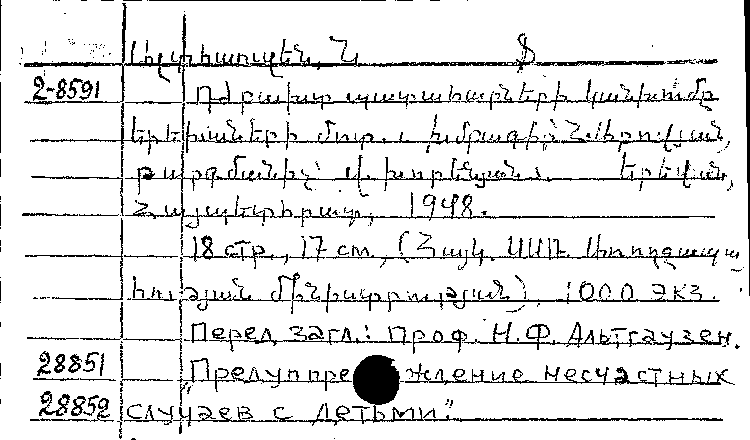 Ալտհաուզեն, Ն Ֆ
2-8591 Դժբախտ պատահարների կանխումը
երեխաների մոտ.
թարգմանիչ՝ Երևան,
Հայպետհրատ, 1948.
18 стр., 17 см, (Հայկ. ՍՍՌ Առողջապա
հության մինիստրություն), 1000 экз.
Перед загл.: Проф. Н.Ф. Альтгаузен.
28851 "Предупре ждение несчастных
28852 случаев с детьми".